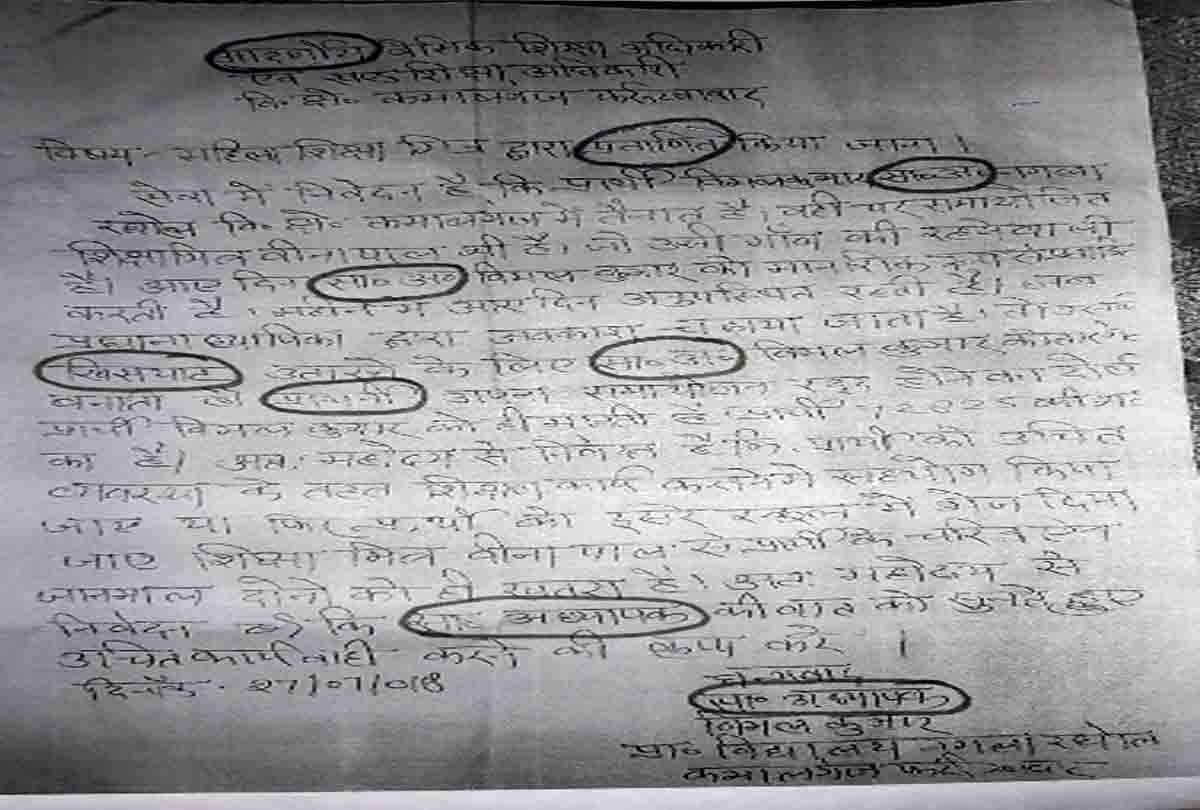 माहनीय बेसिक शिक्षा अधिकारी
एवं सह शिक्षा अधिकारी
वि. क्षे. कमालगंज फर्रुखाबाद
विषय - महिला शिक्षा मित्र द्वारा प्रताणित किया जाना ।
सेवा में निवेदन है कि प्रार्थी विमल कुमार स०अ० नगला
वि. क्षे. कमालगंज में तैनात है। वही पर समायोजित
शिक्षामित्र वीना पाल भी है। जो उसी गॉव की रहने वाली
है। आए दिन स०अ० विमल कुमार को मानसिक रूप
करती है। में आए दिन अनुपस्थित रहती है। जब
प्रधानाध्यापिका द्वारा अवकाश चढाया जाता है, तो उसके
उतारने के लिए स०अ० विमल कुमार को
बनाती है। अपना समायोजन रद्द होने का दोषी
प्रार्थी विमल कुमार को ही मानती है प्रार्थी
का है। अतः महोदय से निवेदन है कि प्रार्थी को उचित
व्यवस्था के तहत शिक्षण कार्य कराने में सहयोग किया
जाए या फिर प्रार्थी को दूसरे स्कूल में भेज दिया
जाए शिक्षा मित्र वीना पाल से प्रार्थी के चरित्र एवं
जानमाल दोनो को ही खतरा है। अतः महोदय से
निवेदन है कि सह अध्यापक की बात को सुनते हुए
उचित कार्यवाही करने की कृपा करें ।
दिनॉक - 27/07/018
धन्यवाद
स० अध्यापक
विमल कुमार
प्रा० विद्यालय नगला
कमालगंज